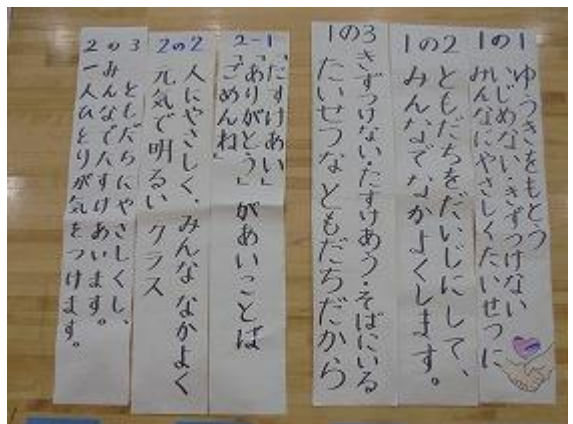 1の1
ゆうきをもとう
いじめない・きずつけない
みんなにやさしくたいせつに
1の2
ともだちをだいじにして、
みんなでなかよくします。
1の3
きずつけない・たすけあう・そばにいる
たいせつなともだちだから
2-1
「たすけあい」
「ありがとう」があいことば
「ごめんね」
2の2
人にやさしく、みんななかよく
元気で明るいクラス
2の3
ともだちにやさしくし、
みんなでたすけあいます。
一人ひとりが気をつけます。